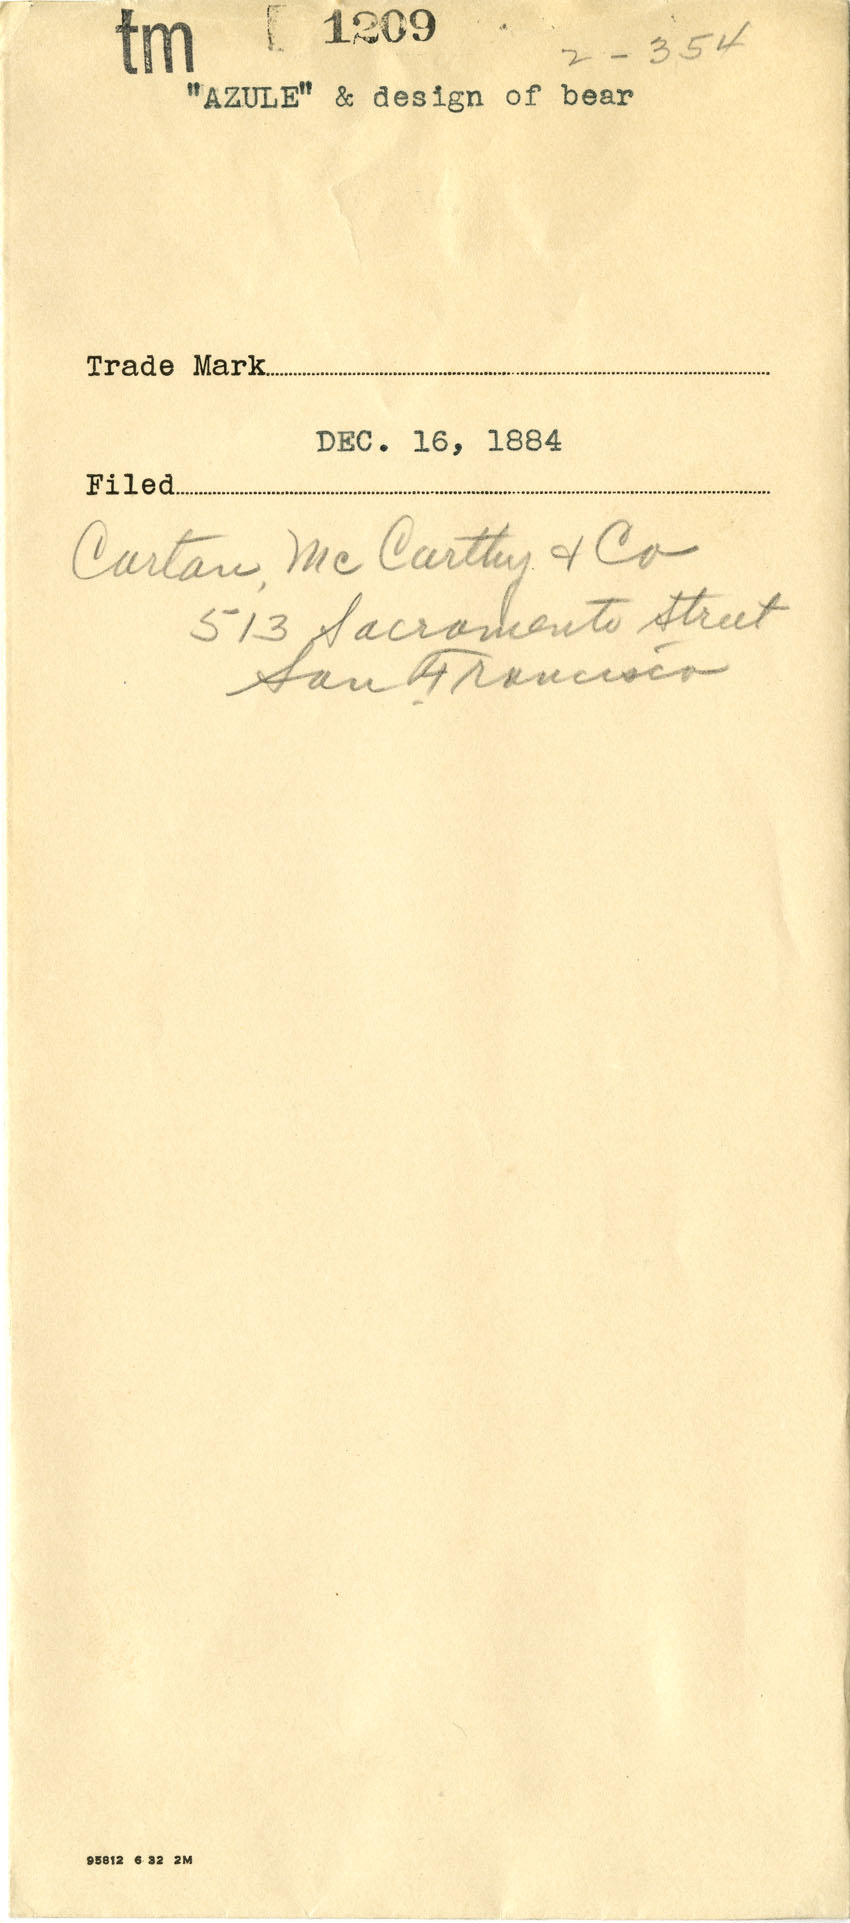 tm 1209 2-354
"AZULE" & design of bear
Trade Mark
DEC. 16, 1884
Filed
Cartan, Mc Carthy & Co
513 Sacramento Street
San Francisco
95812 6 32 2M